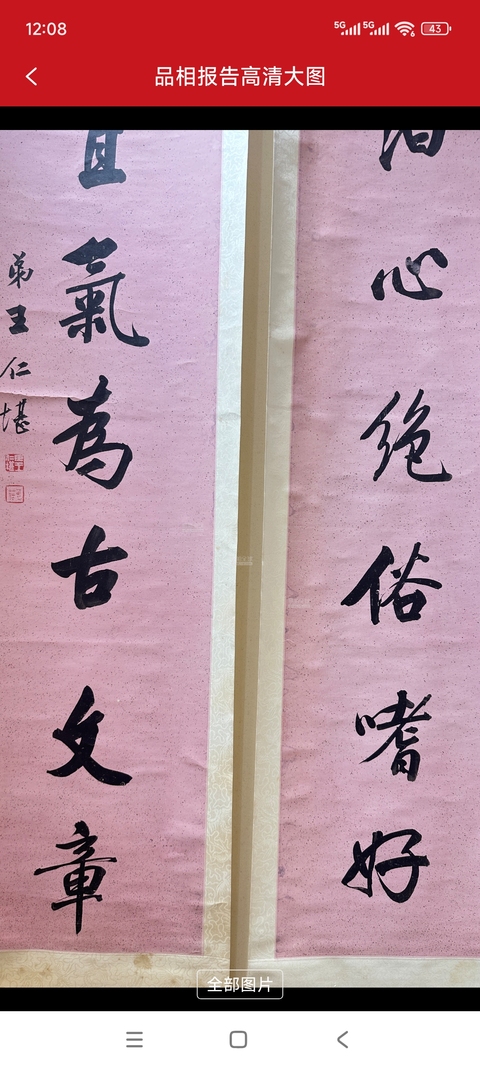 12:08 5G 5G 6 43
品相报告高清大图
心絶俗嗜好
氣為古文章
弟王仁堪
全部图片